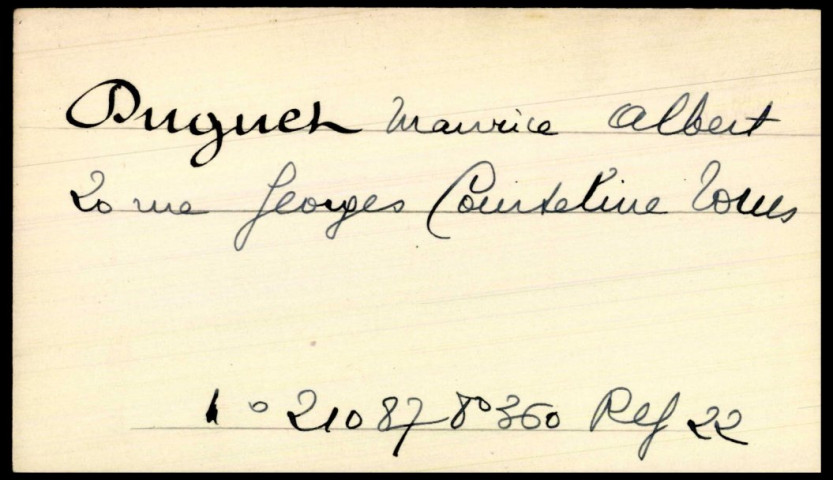 Duguet Maurice Albert
20 rue Georges Courteline Tours
1 0 21087 80360 Rég 22